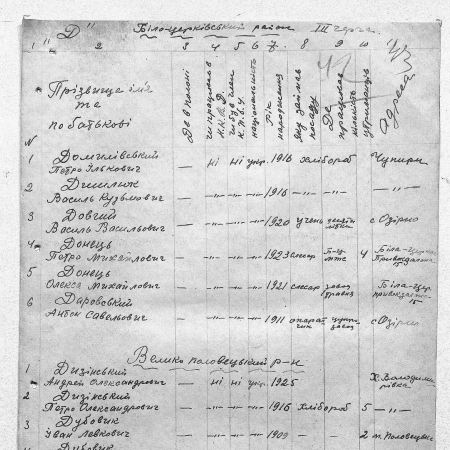 "Д" Біло-церківський район III черга
1 2 3 4 5 6 7 8 9 10
Прізвище ім'я
та
по батькові
Де в полоні
чи працював
чи був член
національність
рік
народження
яку займав
посаду
Де
працював
кількість
утриманців
Адреса
N
1 Домилівський
Петро Ількович — ні ні укр. 1916 хлібороб Чупири
2 Дишлюк
Василь Кузьмович — 1916 —
3 Довгий
Василь Васильович — 1920 учень с Озірно
4 Донець Біла-Церква
Петро Михайлович — 1923 слюсар 4
5 Донець
Олекса Михайлович — 1921 слюсар завод Біла-Цер
15
6 Даровський
Антон Савельович — 1911 апарат чик завод с Озірно
Велико половецький р-н
1 Дизінський
Андрій Олександрович — ні ні укр. 1925 Х. Володими
рівка
2 Дизінський
Петро Олександрович — 1916 хлібороб 5 —"—
3 Дубовик
Іван Левкович — 1909 — 2 м. Половецьке
Дубовик